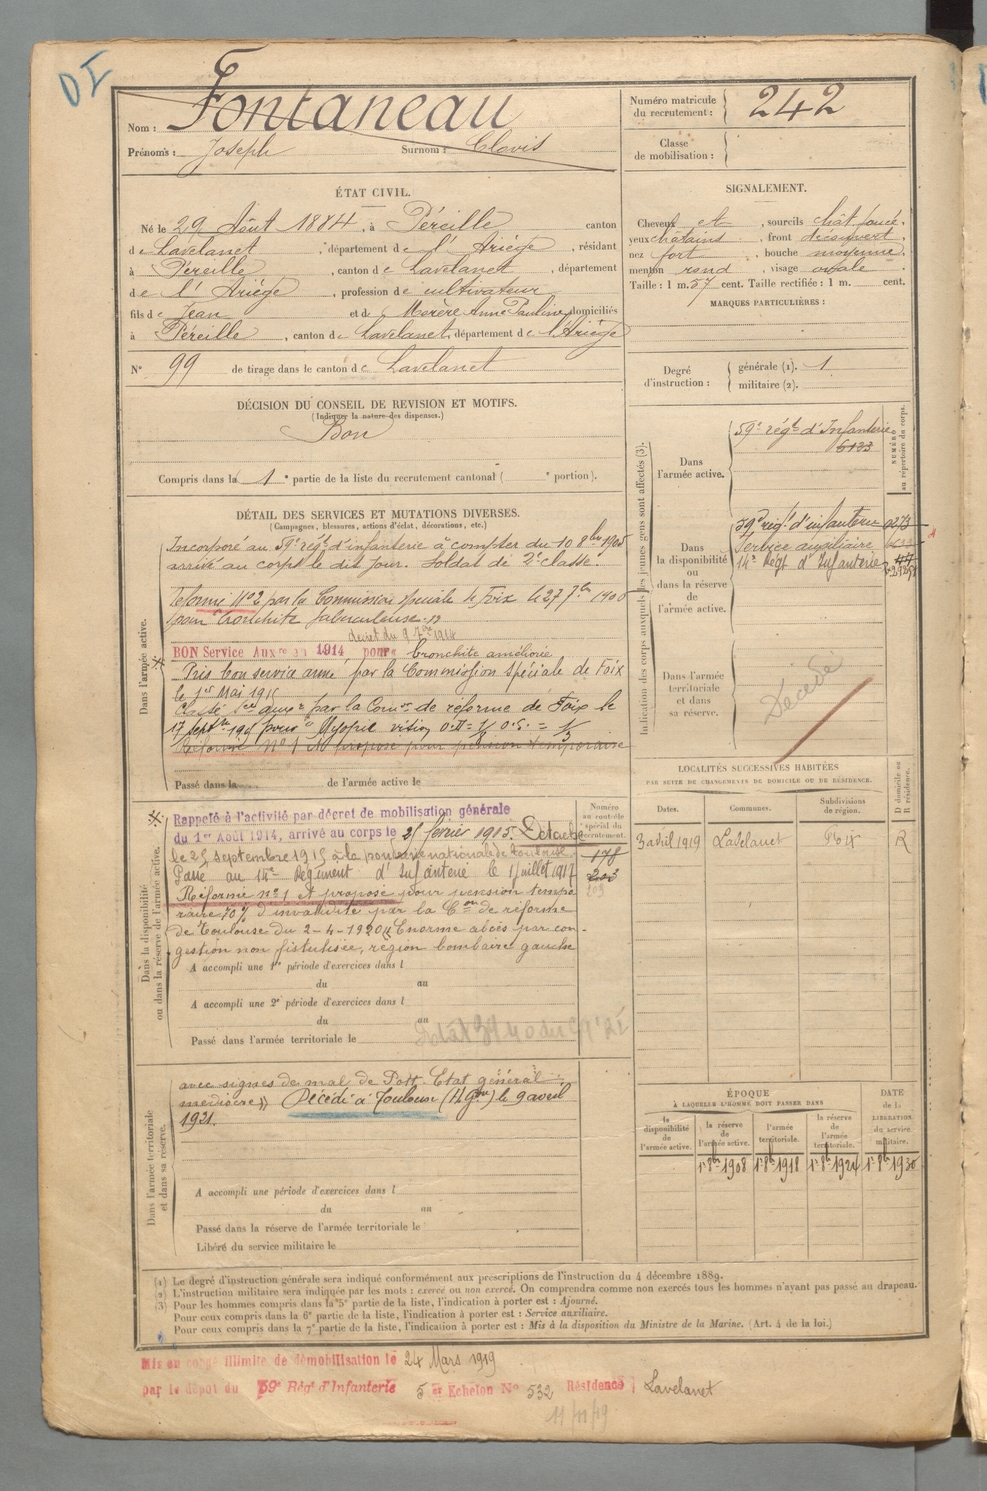 Nom : Fontaneau
Prénoms : Joseph Surnom : Clovis
Numéro matricule du recrutement : 242
Classe de mobilisation :
ÉTAT CIVIL.
Né le 29 Août 1884, à Péreille canton
de Lavelanet, département de l'Ariège, résidant
à Péreille, canton de Lavelanet, département
de l'Ariège, profession de cultivateur
fils de Jean et de Merère Anne Pauline domiciliés
à Péreille, canton de Lavelanet, département de l'Ariège
N° 99 de tirage dans le canton de Lavelanet
SIGNALEMENT.
Cheveux et , sourcils chât foncé,
yeux châtains , front découvert,
nez fort , bouche moyenne,
menton rond , visage ovale.
Taille : 1 m. 57 cent. Taille rectifiée : 1 m. cent.
MARQUES PARTICULIÈRES :
Degré d'instruction : générale (1). 1
militaire (2).
DÉCISION DU CONSEIL DE REVISION ET MOTIFS.
(Indiquer la nature des dispenses.)
Bon
Compris dans la 1e partie de la liste du recrutement cantonal ( e portion).
DÉTAIL DES SERVICES ET MUTATIONS DIVERSES.
(Campagnes, blessures, actions d'éclat, décorations, etc.)
Dans l'armée active.
Incorporé au 59e régt d'infanterie à compter du 10 8bre 1905
arrivé au corps le dit jour. Soldat de 2e classe.
Réformé N°2 par la Commission spéciale de Foix le 27 7bre 190
pour bronchite tuberculeuse.
décret du 9 7bre 1914
BON Service Aux en 1914 pour bronchite améliorée
Pris bon service armé par la Commission Spéciale de Foix
le 1er Mai 1915
Classé Sce auxre par la Comon de réforme de Foix le
17 Septbre 191 pour Myopie vision O.D= O.G. =
Réformé n°1 et proposé pour pension temporaire
Passé dans la de l'armée active le
Indication des corps auxquels les jeunes gens sont affectés (3).
NUMÉRO au répertoire du corps.
Dans l'armée active.
59e régt d'Infanterie
6183
Dans la disponibilité ou dans la réserve de l'armée active.
59e régt d'infanterie
Service auxiliaire
14e Régt d'Infanterie
Dans l'armée territoriale et dans sa réserve.
Décédé
LOCALITÉS SUCCESSIVES HABITÉES
PAR SUITE DE CHANGEMENTS DE DOMICILE OU DE RÉSIDENCE.
Dates. Communes. Subdivisions de région. D domicile ou R résidence.
3 avril 1919 Lavelanet Foix R
Dans la disponibilité ou dans la réserve de l'armée active.
Numéro au contrôle spécial du recrutement.
178
203
Rappelé à l'activité par décret de mobilisation générale
du 1er Août 1914, arrivé au corps le 21 février 1915. Détaché
le 25 septembre 1915 à la poudrerie nationale de Toulouse.
Passé au 14e Régiment d'Infanterie le 1 juillet 1917
Réformé n°1 et proposé pour pension tempo
raire 70% d'invalidité par la Con de réforme
de Toulouse du 2-4-1920 « Enorme abcès par con-
gestion non fistulisée, région lombaire gauche
A accompli une 1re période d'exercices dans l
du au
A accompli une 2e période d'exercices dans l
du au
Passé dans l'armée territoriale le
Dans l'armée territoriale et dans sa réserve.
avec signes de mal de Pott. Etat général
médiocre » Décédé à Toulouse (H Gne) le 9 avril
1921.
A accompli une période d'exercices dans l
du au
Passé dans la réserve de l'armée territoriale le
Libéré du service militaire le
ÉPOQUE
À LAQUELLE L'HOMME DOIT PASSER DANS
la disponibilité de l'armée active. la réserve de l'armée active. l'armée territoriale. la réserve de l'armée territoriale. DATE de la LIBÉRATION du service militaire.
1r 8bre 1908 1r 8bre 1918 1r 8bre 1924 1r 8bre 1930
(1) Le degré d'instruction générale sera indiqué conformément aux prescriptions de l'instruction du 4 décembre 1889.
(2) L'instruction militaire sera indiquée par les mots : exercé ou non exercé. On comprendra comme non exercés tous les hommes n'ayant pas passé au drapeau.
(3) Pour les hommes compris dans la 5e partie de la liste, l'indication à porter est : Ajourné.
Pour ceux compris dans la 6e partie de la liste, l'indication à porter est : Service auxiliaire.
Pour ceux compris dans la 7e partie de la liste, l'indication à porter est : Mis à la disposition du Ministre de la Marine. (Art. 4 de la loi.)
Mis en congé illimité de démobilisation le 24 Mars 1919
par le dépôt du 59e Régt d'Infanterie 5 e Echelon N° 532 Résidence Lavelanet